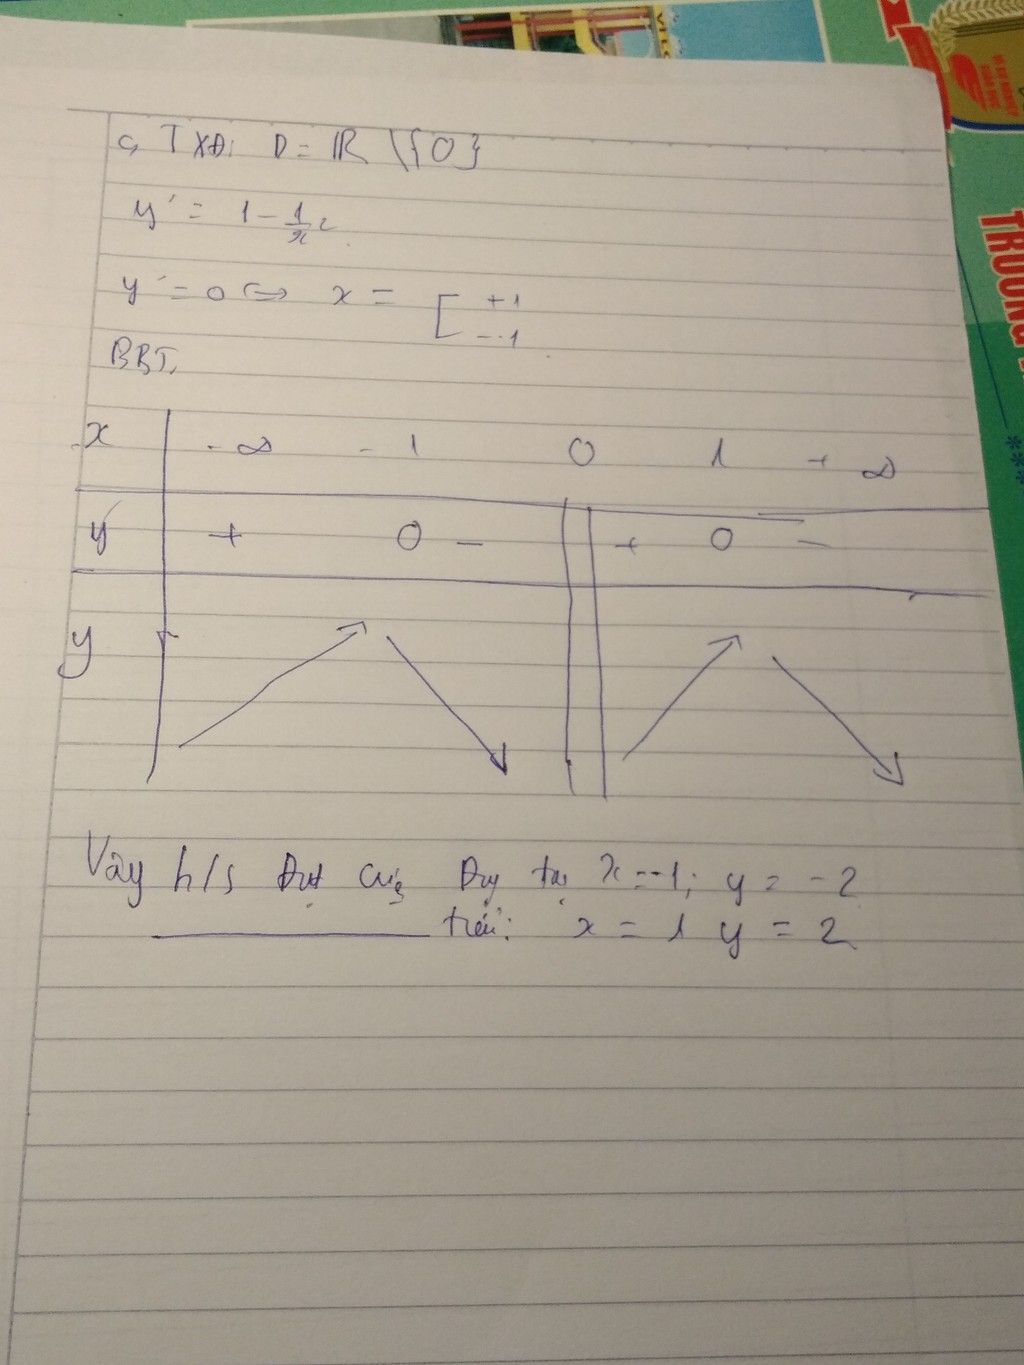 c, TXĐ: D = ℝ \ {0}
y' = 1 - 1/x²
y' = 0 ⇔ x = [ +1
-1
BBT,
x -∞ -1 0 1 +∞
y' + 0 - || + 0 -
y
Vậy h/s Đạt cực Đại tại x = -1; y = -2
tiểu: x = 1 y = 2
TRƯỜNG